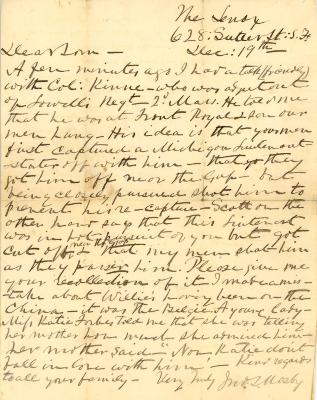 The Lenox
628: Sutter St: S.F.
Dec: 19th
Dear Tom –
A few minutes ago I had a talk (friendly)
with Col: Kinne – who was adjutant
of Lowell's Regt 2d. Mass. He told me
that he was at Front Royal & saw our
men hung – His idea is that your men
first captured a Michigan Lieutenant
– started off with him – that
got him off near the Gap – but
being closely pursued shot him to
prevent his re-capture – Scott on the
other hand says that this Lieutenant
was in hot pursuit of you but got
cut off & that my men shot him
as they passed him. Please give me
your recollection of it. I made a mis-
take about Willie's having been on the
China – it was the Belgic. A young lady –
Miss Katie Forbes told me that she was telling
her mother how much she admired him –
her mother said – Now Katie don't
fall in love with him – Kind regards
to all your family – Very truly Jno. S. Mosby